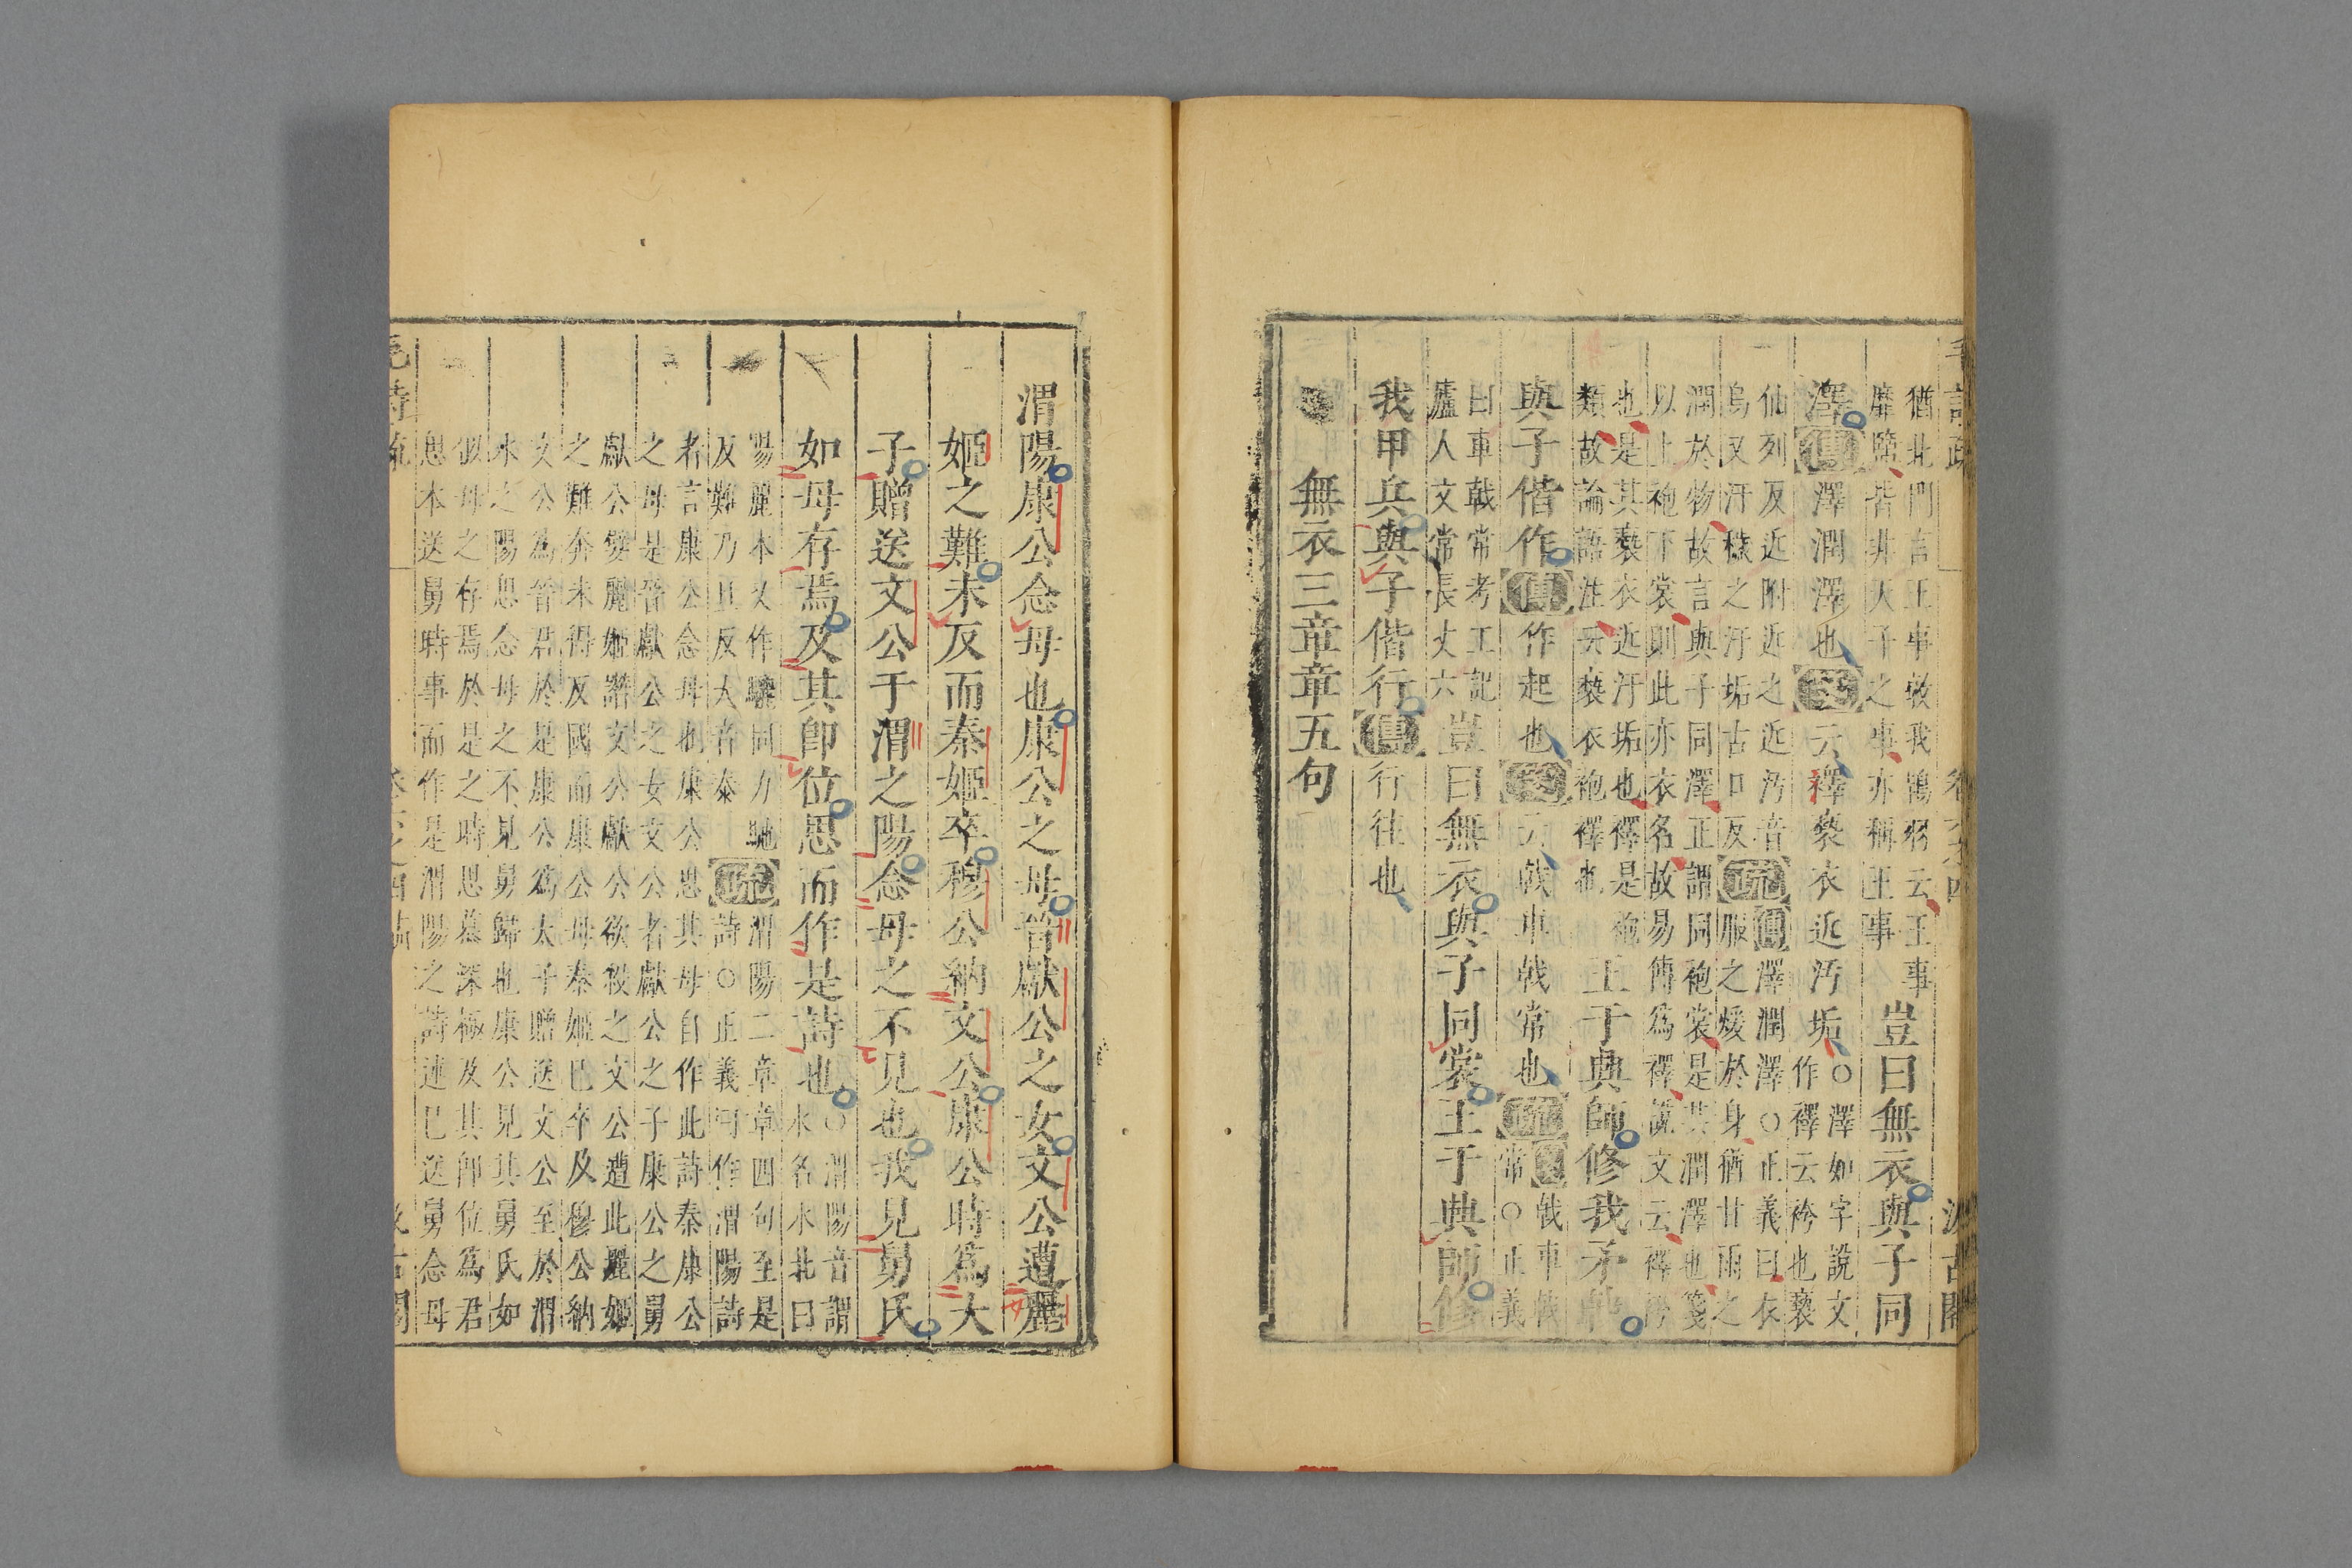 猶北門言王事敦我鴇羽云王事
靡盬皆非天子之事亦稱王事
豈曰無衣與子同
澤傳澤潤澤也箋云襗褻衣近汚垢
○澤如字說文
作襗云袴也褻
仙列反近附近之近汚音
烏又汙穢之汙垢古口反
疏
傳澤潤澤○正義曰衣
服之煖於身猶甘雨之
潤於物故言與子同澤正謂同袍裳是共潤澤也箋
以上袍下裳則此亦衣名故易傳爲襗說文云襗袴
也是其褻衣近汙垢也襗是袍
類故論語注云褻衣袍襗也
王于興師修我矛戟
與子偕作傳作起也箋云戟車戟常也疏
箋戟車戟
常○正義
曰車戟常考工記
廬人文常長丈六
豈曰無衣與子同裳王于興師修
我甲兵與子偕行傳行往也
無衣三章章五句
渭陽康公念母也康公之母晉獻公之女文公遭麗
姬之難未反而秦姬卒穆公納文公康公時爲大
子贈送文公于渭之陽念母之不見也我見舅氏
如母存焉及其卽位思而作是詩也
○渭陽音謂
水名水北曰
陽麗本又作驪同力馳
反難乃旦反大音泰
疏
渭陽二章章四句至是
詩○正義曰作渭陽詩
者言康公念母也康公思其母自作此詩秦康公
之母是晉獻公之女文公者獻公之子康公之舅
獻公嬖麗姬譖文公獻公欲殺之文公遭此麗姬
之難奔未得反國而康公母秦姬已卒及穆公納
文公爲晉君於是康公爲太子贈送文公至於渭
水之陽思念母之不見舅歸也康公見其舅氏如
似母之存焉於是之時思慕深極及其卽位爲君
思本送舅時事而作是渭陽之詩述巳送舅念母